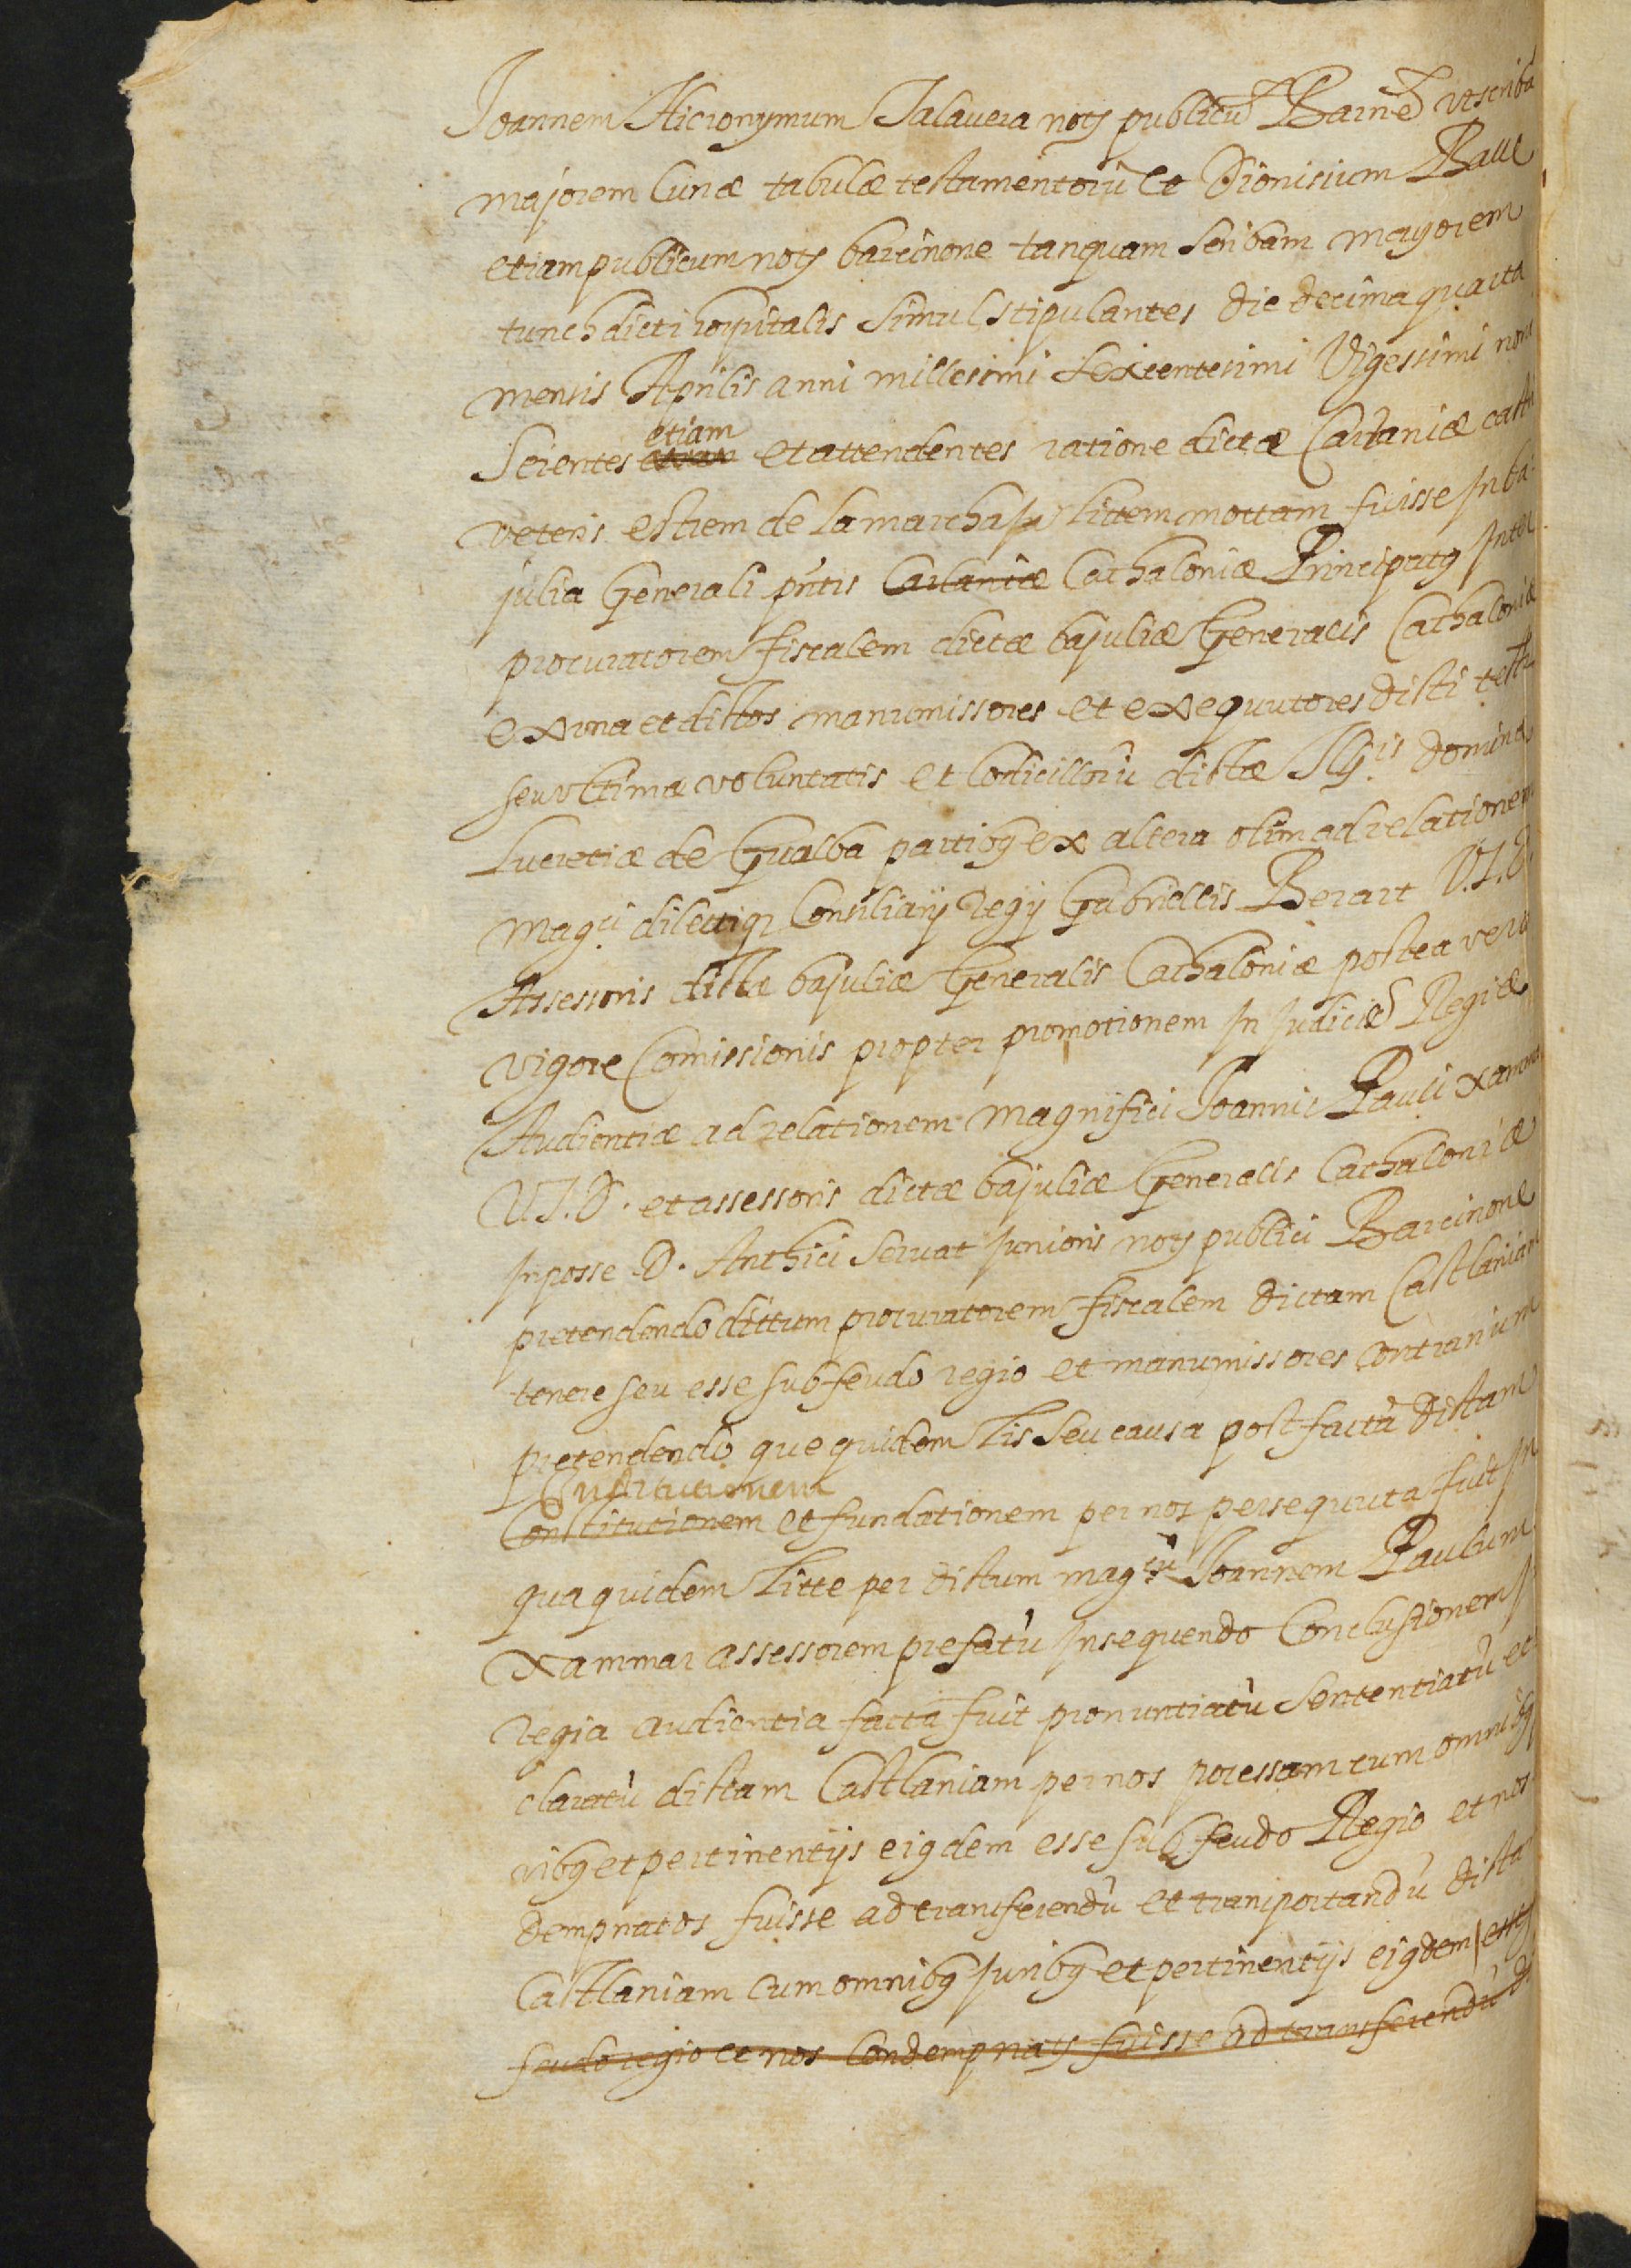 Joannem Hieronymum Talavera noty publicũ Barne vt scriba
majorem Cunæ tabulæ testamentorũ et Dionisium Raull
etiam publicum noty barcinone tanquam scribam mayorem
tunch dicti hospitalis simul stipulantes die decima quarta
mensis Aprilis anni millesimi sexcentesimi vigessimi noni
etiam
Scientes et attendentes ratione dictæ Carlaniæ castri
veteris estrem de la marcha littem mottam fuisse in ba-
julia Generali pñtis Carlaniæ Cathaloniæ Principatq inter
procuratorem fiscalem dictæ bajuliæ Generalis Cathaloniæ
ex una et dictos manumissores et exequutores dicti testi
seu vltimæ voluntatis et Codicillorũ dictæ dominæ
Lucretiæ de Gualba partibq ex altera olim ad relationem
magci dilectiqz Consiliarij regij Gabriellis Berart V.J.D.
Assessoris dictæ bajuliæ Generalis Cathaloniæ postea vero
vigore Comissionis propter promotionem in judicẽ Regiæ
Audientiæ ad relationem magnifici Joannis Pauli Xammar
V.J.D. et assessoris dictæ bajuliæ Generalis Cathaloniæ
in posse D. Anthici Servat junioris noty publici Barcinone
pretendendo dictum procuratorem fiscalem dictam Castlaniam
tenere seu esse sub feudo regio et manumissores contrarium
pretendendo que quidem Lis seu causa post factã dictam
Institutionem
Constitutionem et fundationem per nos persequuta fuit in
qua quidem Litte per dictum magcũ Joannem Paulum
Xammar assessorem prefatũ insequendo Conclusionem in
regia audientia factã fuit pronuntiatũ sententiatũ et
claratũ dictam Castlaniam per nos pocessam cum omnibq
ribq et pertinentijs eiqdem esse sub feudo Regio et nos
dempnatos fuisse ad transferendũ et transportandũ dictam
Castlaniam cum omnibq juribq et pertinentijs eiqdem esse
feudo regio et nos Condempnaty fuisse ad transferendũ di